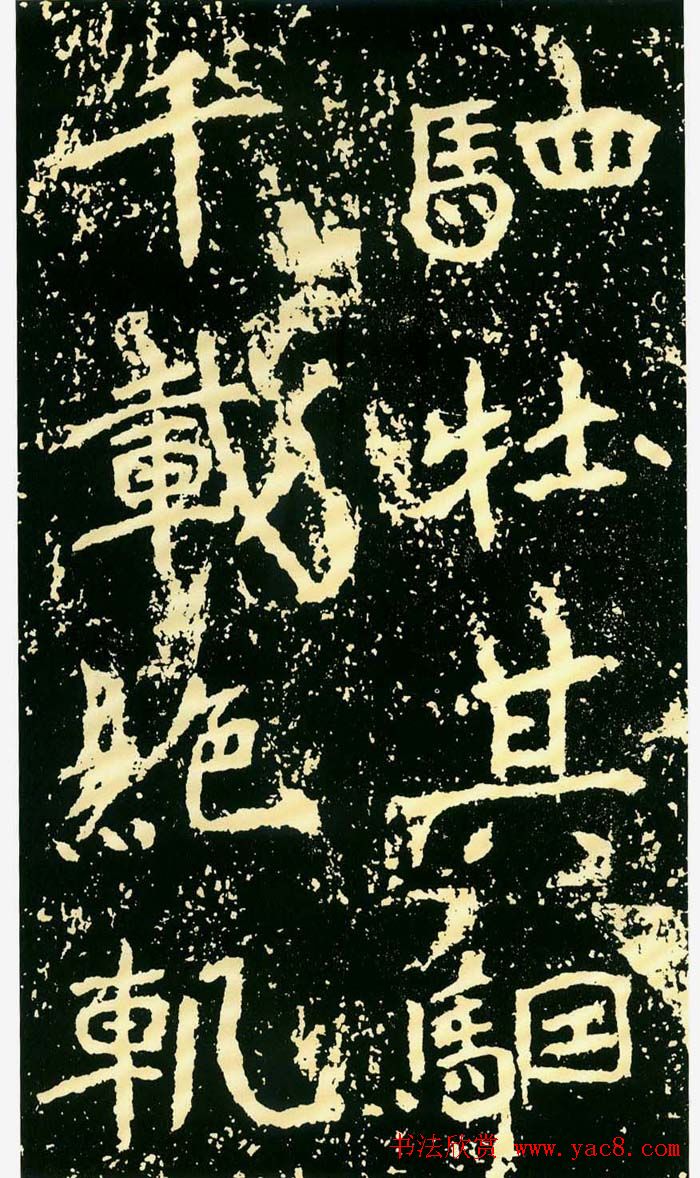 駟牡其駰
千載絕軌
书法欣赏 www.yac8.com